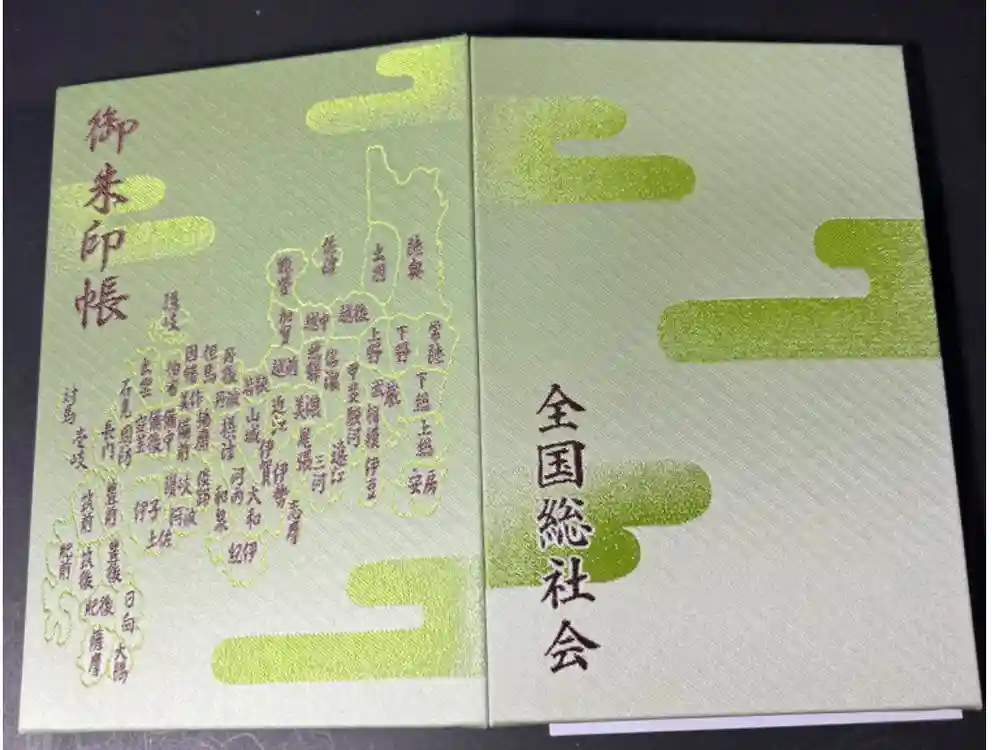 御朱印帳
陸奥
出羽
佐渡
能登
越後
越中
加賀
常陸
下野
上野
信濃
飛騨
越前
下総
上総
安房
武蔵
相模
伊豆
甲斐
駿河
遠江
三河
美濃
尾張
近江
伊賀
伊勢
志摩
若狭
山城
大和
河内
和泉
摂津
紀伊
丹後
丹波
但馬
播磨
淡路
因幡
美作
備前
備中
備後
伯耆
出雲
隠岐
石見
安芸
周防
長門
讃岐
阿波
伊予
土佐
対馬
壱岐
筑前
豊前
肥前
筑後
豊後
肥後
日向
薩摩
大隅
全国総社会